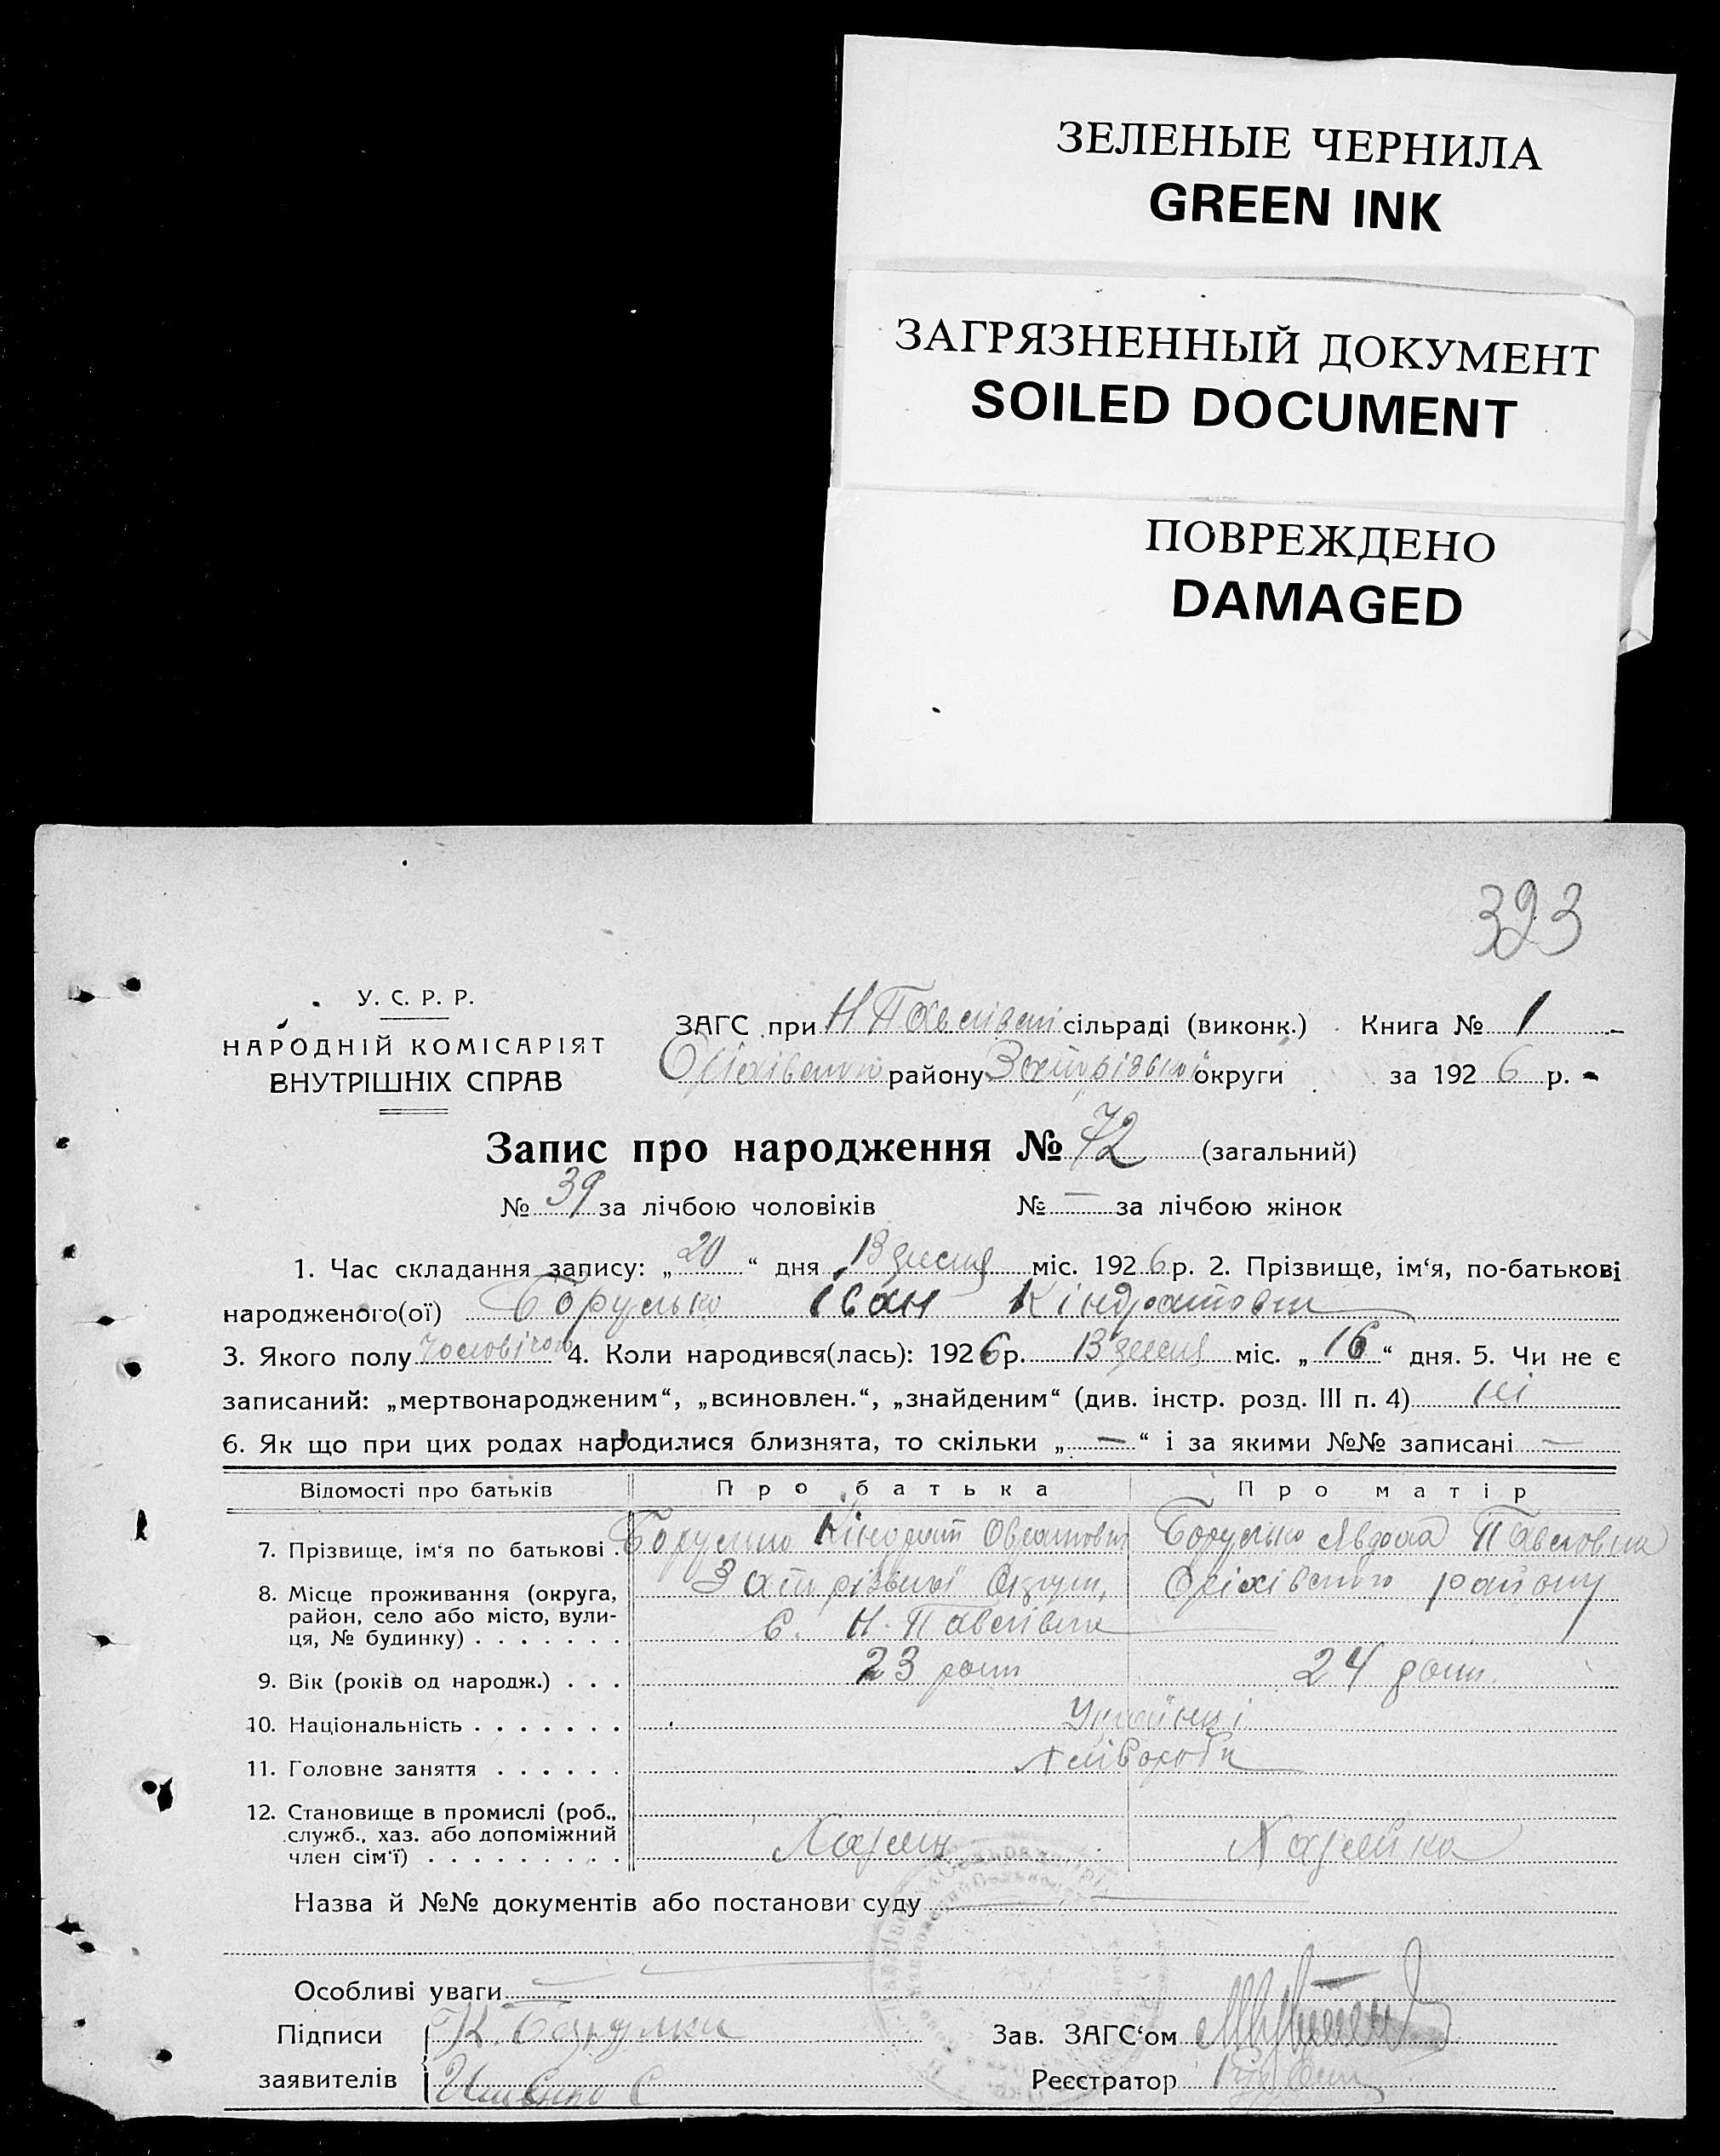 ЗЕЛЕНЫЕ ЧЕРНИЛА
GREEN INK
ЗАГРЯЗНЕННЫЙ ДОКУМЕНТ
SOILED DOCUMENT
ПОВРЕЖДЕНО
DAMAGED
393
У. С. Р. Р.
НАРОДНІЙ КОМІСАРІЯТ
ВНУТРІШНІХ СПРАВ
ЗАГС при сільраді (виконк.) Книга № 1
району округи за 1926 р.
Запис про народження № 72 (загальний)
№ 39 за лічбою чоловіків № — за лічбою жінок
1. Час складання запису: „20“ дня Вересня міс. 1926 р. 2. Прізвище, ім‘я, по-батькові
народженого(ої) Іван Кіндратович
3. Якого полу 4. Коли народився(лась): 1926 р. Вересня міс. „16“ дня. 5. Чи не є
записаний: „мертвонародженим“, „всиновлен.“, „знайденим“ (див. інстр. розд. III п. 4) ні
6. Як що при цих родах народилися близнята, то скільки „—“ і за якими №№ записані —
Відомості про батьків Про батька Про матір
7. Прізвище, ім‘я по батькові Кіндрат Явдоха Павловна
8. Місце проживання (округа, Оріхівського району
район, село або місто, вули-
ця, № будинку) с. Н. Павлівка
9. Вік (років од народж.) 23 24
10. Національність Українці
11. Головне заняття Хлібороби
12. Становище в промислі (роб.,
служб., хаз. або допоміжний
член сім‘ї) Хазяїн Хазяйка
Назва й №№ документів або постанови суду
Особливі уваги
Підписи К. Зав. ЗАГС‘ом
заявителів Реєстратор